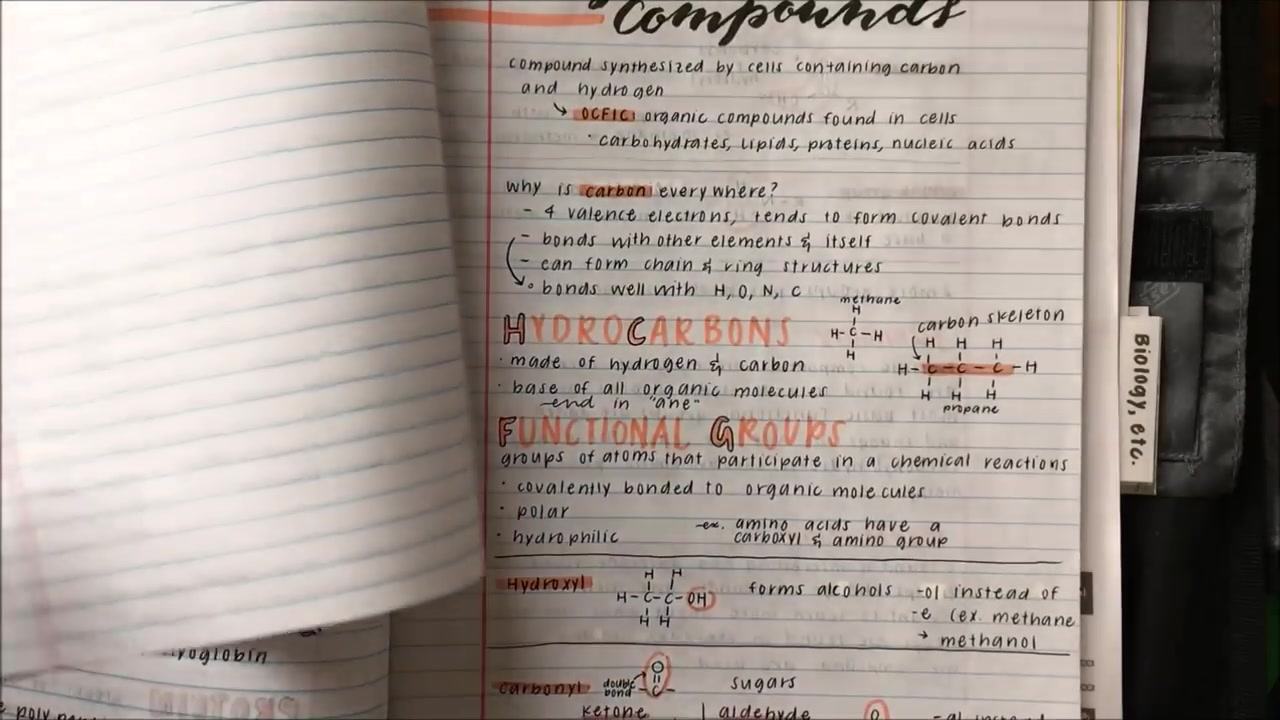 Compounds
compound synthesized by cells containing carbon
and hydrogen
↘ OCFIC: organic compounds found in cells
· carbohydrates, lipids, proteins, nucleic acids
why is carbon everywhere?
- 4 valence electrons, tends to form covalent bonds
- bonds with other elements & itself
- can form chain & ring structures
· bonds well with H, O, N, C
methane
H
H-C-H
H
carbon skeleton
H H H
H-C-C-C-H
H H H
propane
HYDROCARBONS
· made of hydrogen & carbon
· base of all organic molecules
-end in "ane"
FUNCTIONAL GROUPS
groups of atoms that participate in a chemical reactions
· covalently bonded to organic molecules
· polar
· hydrophilic
-ex. amino acids have a
carboxyl & amino group
Hydroxyl
H H
H-C-C-OH
H H
forms alcohols
-ol instead of
-e (ex. methane
→ methanol
carbonyl
double
bond
O
-C-
sugars
ketone
aldehyde
O
-al
Biology, etc.
PROTEIN